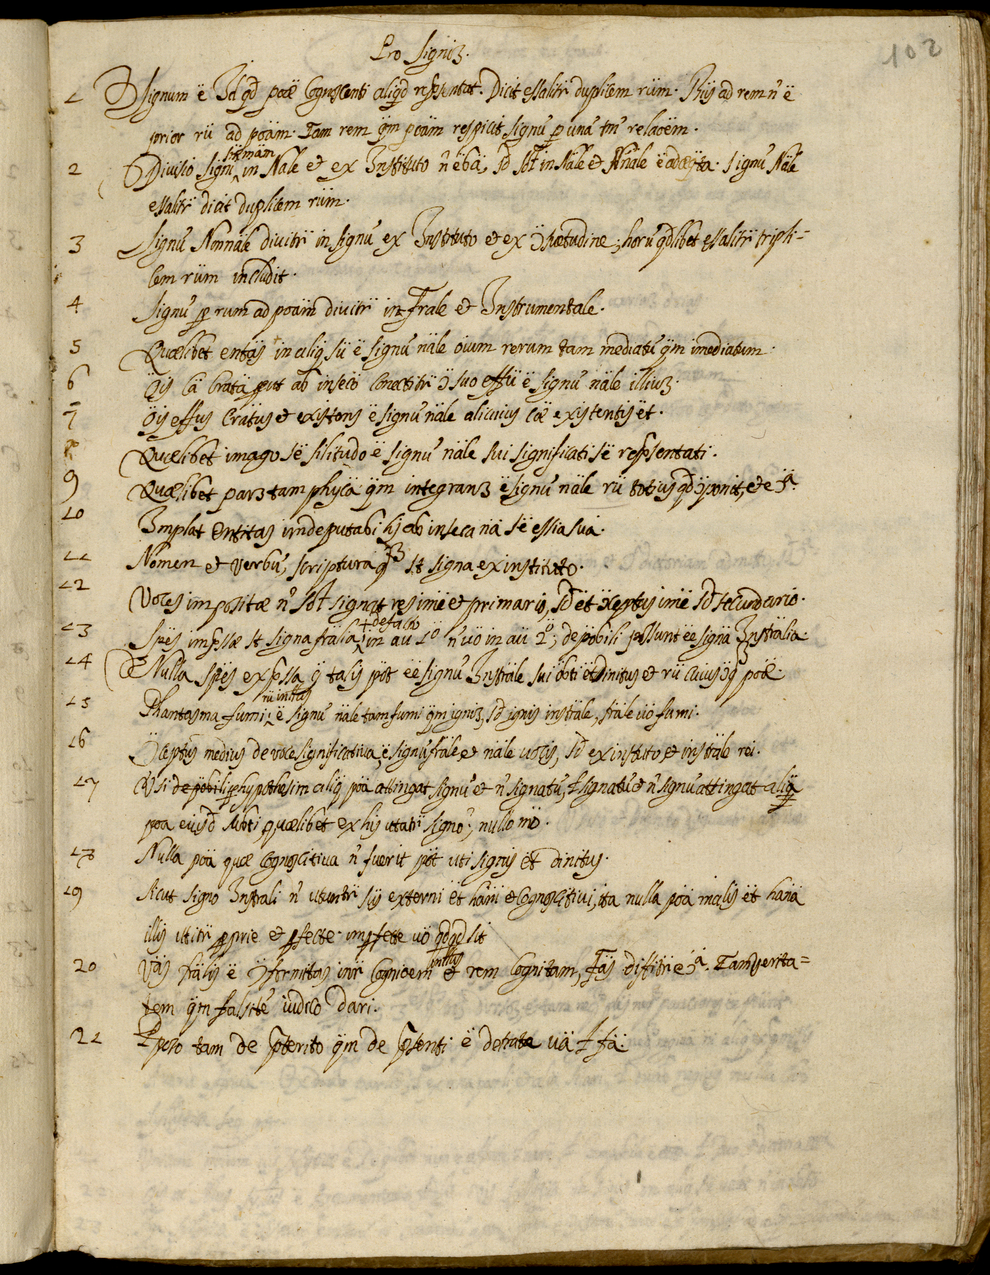 102
Pro Signis.
1 Signum ë Id qd poæ Cognoscenti aliqd repsentat. Dicit essaltr duplicem rüm. Riis ad rem n ë
prior rü ad poäm. Tam rem qm poäm respicit signu p una tm relaöem.
2 Divisio signi in Näle et ex Instituto n ë bä, sd in Näle et Näle ë adæqta. signu Näle
essaltr dicit duplicem rüm.
3 Signu Nonnäle dividitr in signu ex Instituto et ex ɔsuetudine; horu qdlibet essaltr tripli=
cem rüm includit.
4 Signu p rum ad poäm dividitr in Frale et Instrumentale.
5 Quælibet entäs in aliq sü ë signu näle oium rerum tam mediatu qm imediatum.
6 Öis Cä Crata put ab inseco Conectitr ɔ suo effü ë signu näle illius.
7 Öis effus CräTus et existens ë signu näle alicuius Cæ existentis ët.
8 Quælibet imago së silitudo ë signu näle sui significati së repsentati.
9 Quælibet pars tam physica qm integrans ë signu näle rü totius qd ɔponit, et e ɔª.
10 Implat Entitas imdeputabilis ab inseca nä së essia sua.
11 Nomen et verbu, scriptura st signa ex instituto.
12 Voces impositæ n signt res imë et primario, sd ët ɔceptus imë sd secundario.
13 Spës impssæ st signa fralia, in äu 1º n uö in äu 2º; de possibili possunt ëe signa Instralia
14 Nulla spës expssa q talis pöt ëe signu Instrale sui öbti ët dinitus et rü cuiuscɔq poæ
15 Phantasma fumi, ë signu näle tam fumi qm ignis, sd ignis instrale, frale uö fumi.
16 ɔceptus medius de voce significativa, ë signu frale et näle uocis, sd ex instituto et instrale rei.
17 Etsi p hypothesim aliq poä attingat signu et n signatu, l signatu et n signu attingat aliq
poä eiusd subti quælibet ex his utatr signo, nullo mö.
18 Nulla poä quæ Cognoscitiva n fuerit pöt uti signis ët dinitus.
19 Sicut signo Instrali n utuntr süs externi ët hani et Cognoscitivi, ita nulla poä inalis ët hana
illis utitr pprie et pfecte. impfecte uö qdqd sit
20 Väs frälis ë ɔformitas intr Cognioem et rem Cognitam, Fäs difitr e ɔª. Tam verita=
tem qm falsité iudico dari.
21 Pposio tam de pterito qm de psenti ë detnata uä l fä.